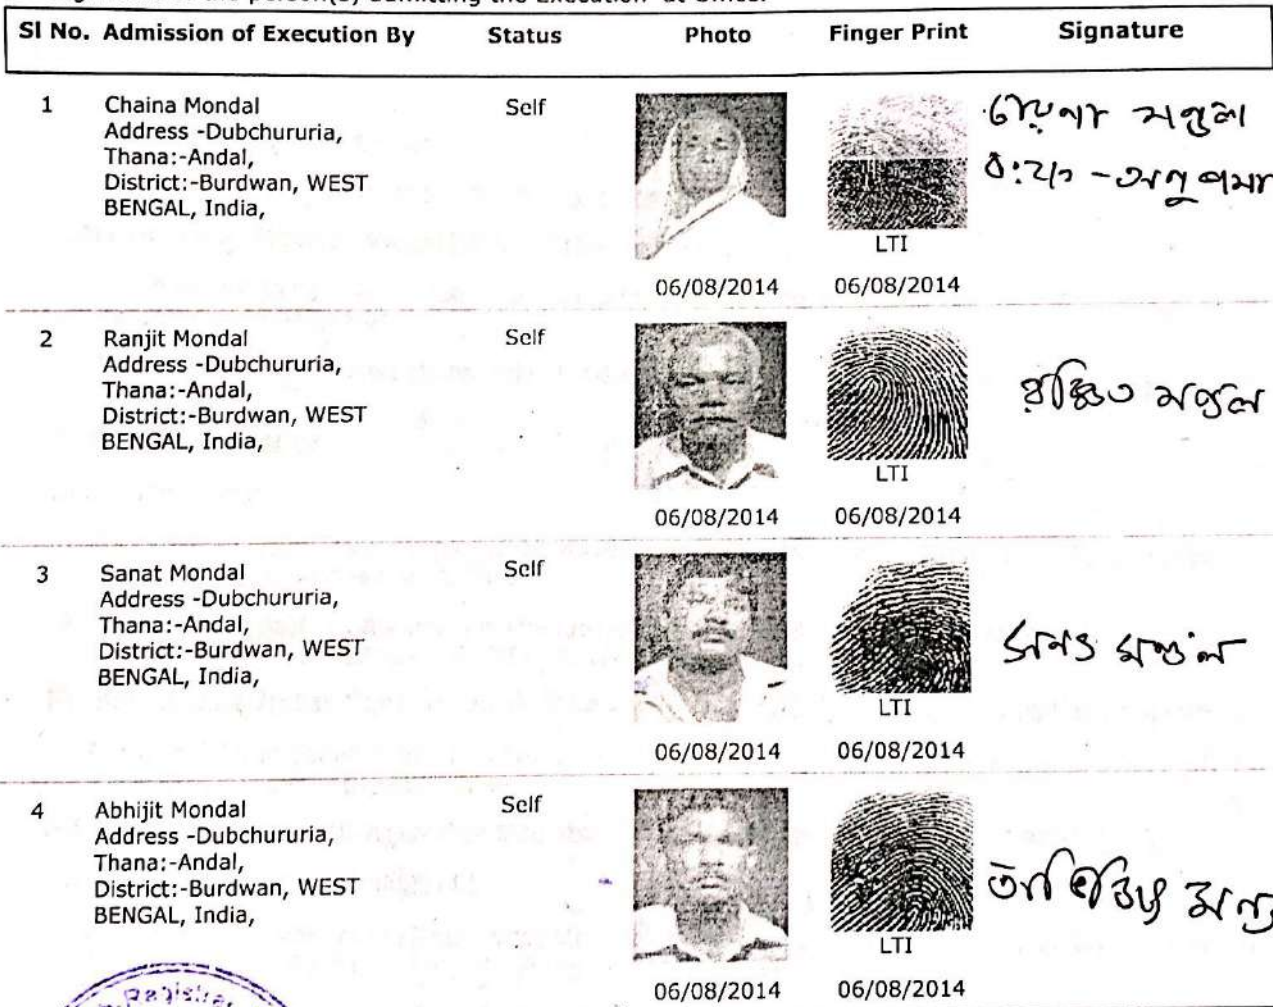 the person(s) admitting the Execution at Office.
Sl No. Admission of Execution By Status Photo Finger Print Signature
1 Chaina Mondal Self
Address -Dubchururia,
Thana:-Andal,
District:-Burdwan, WEST
BENGAL, India,
LTI
06/08/2014 06/08/2014
চায়না মণ্ডল
2 Ranjit Mondal Self
Address -Dubchururia,
Thana:-Andal,
District:-Burdwan, WEST
BENGAL, India,
LTI
06/08/2014 06/08/2014
রঞ্জিত মণ্ডল
3 Sanat Mondal Self
Address -Dubchururia,
Thana:-Andal,
District:-Burdwan, WEST
BENGAL, India,
LTI
06/08/2014 06/08/2014
সনৎ মণ্ডল
4 Abhijit Mondal Self
Address -Dubchururia,
Thana:-Andal,
District:-Burdwan, WEST
BENGAL, India,
LTI
06/08/2014 06/08/2014
অভিজিৎ মণ্ডল
Registrar